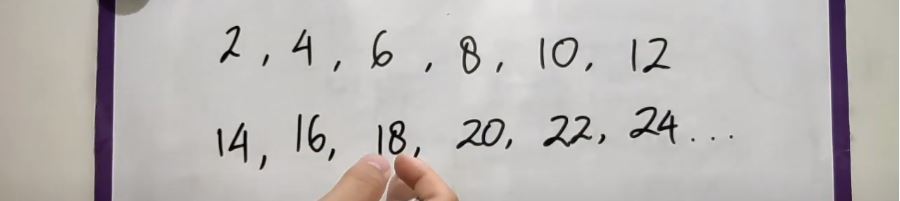 2, 4, 6, 8, 10, 12
14, 16, 18, 20, 22, 24...